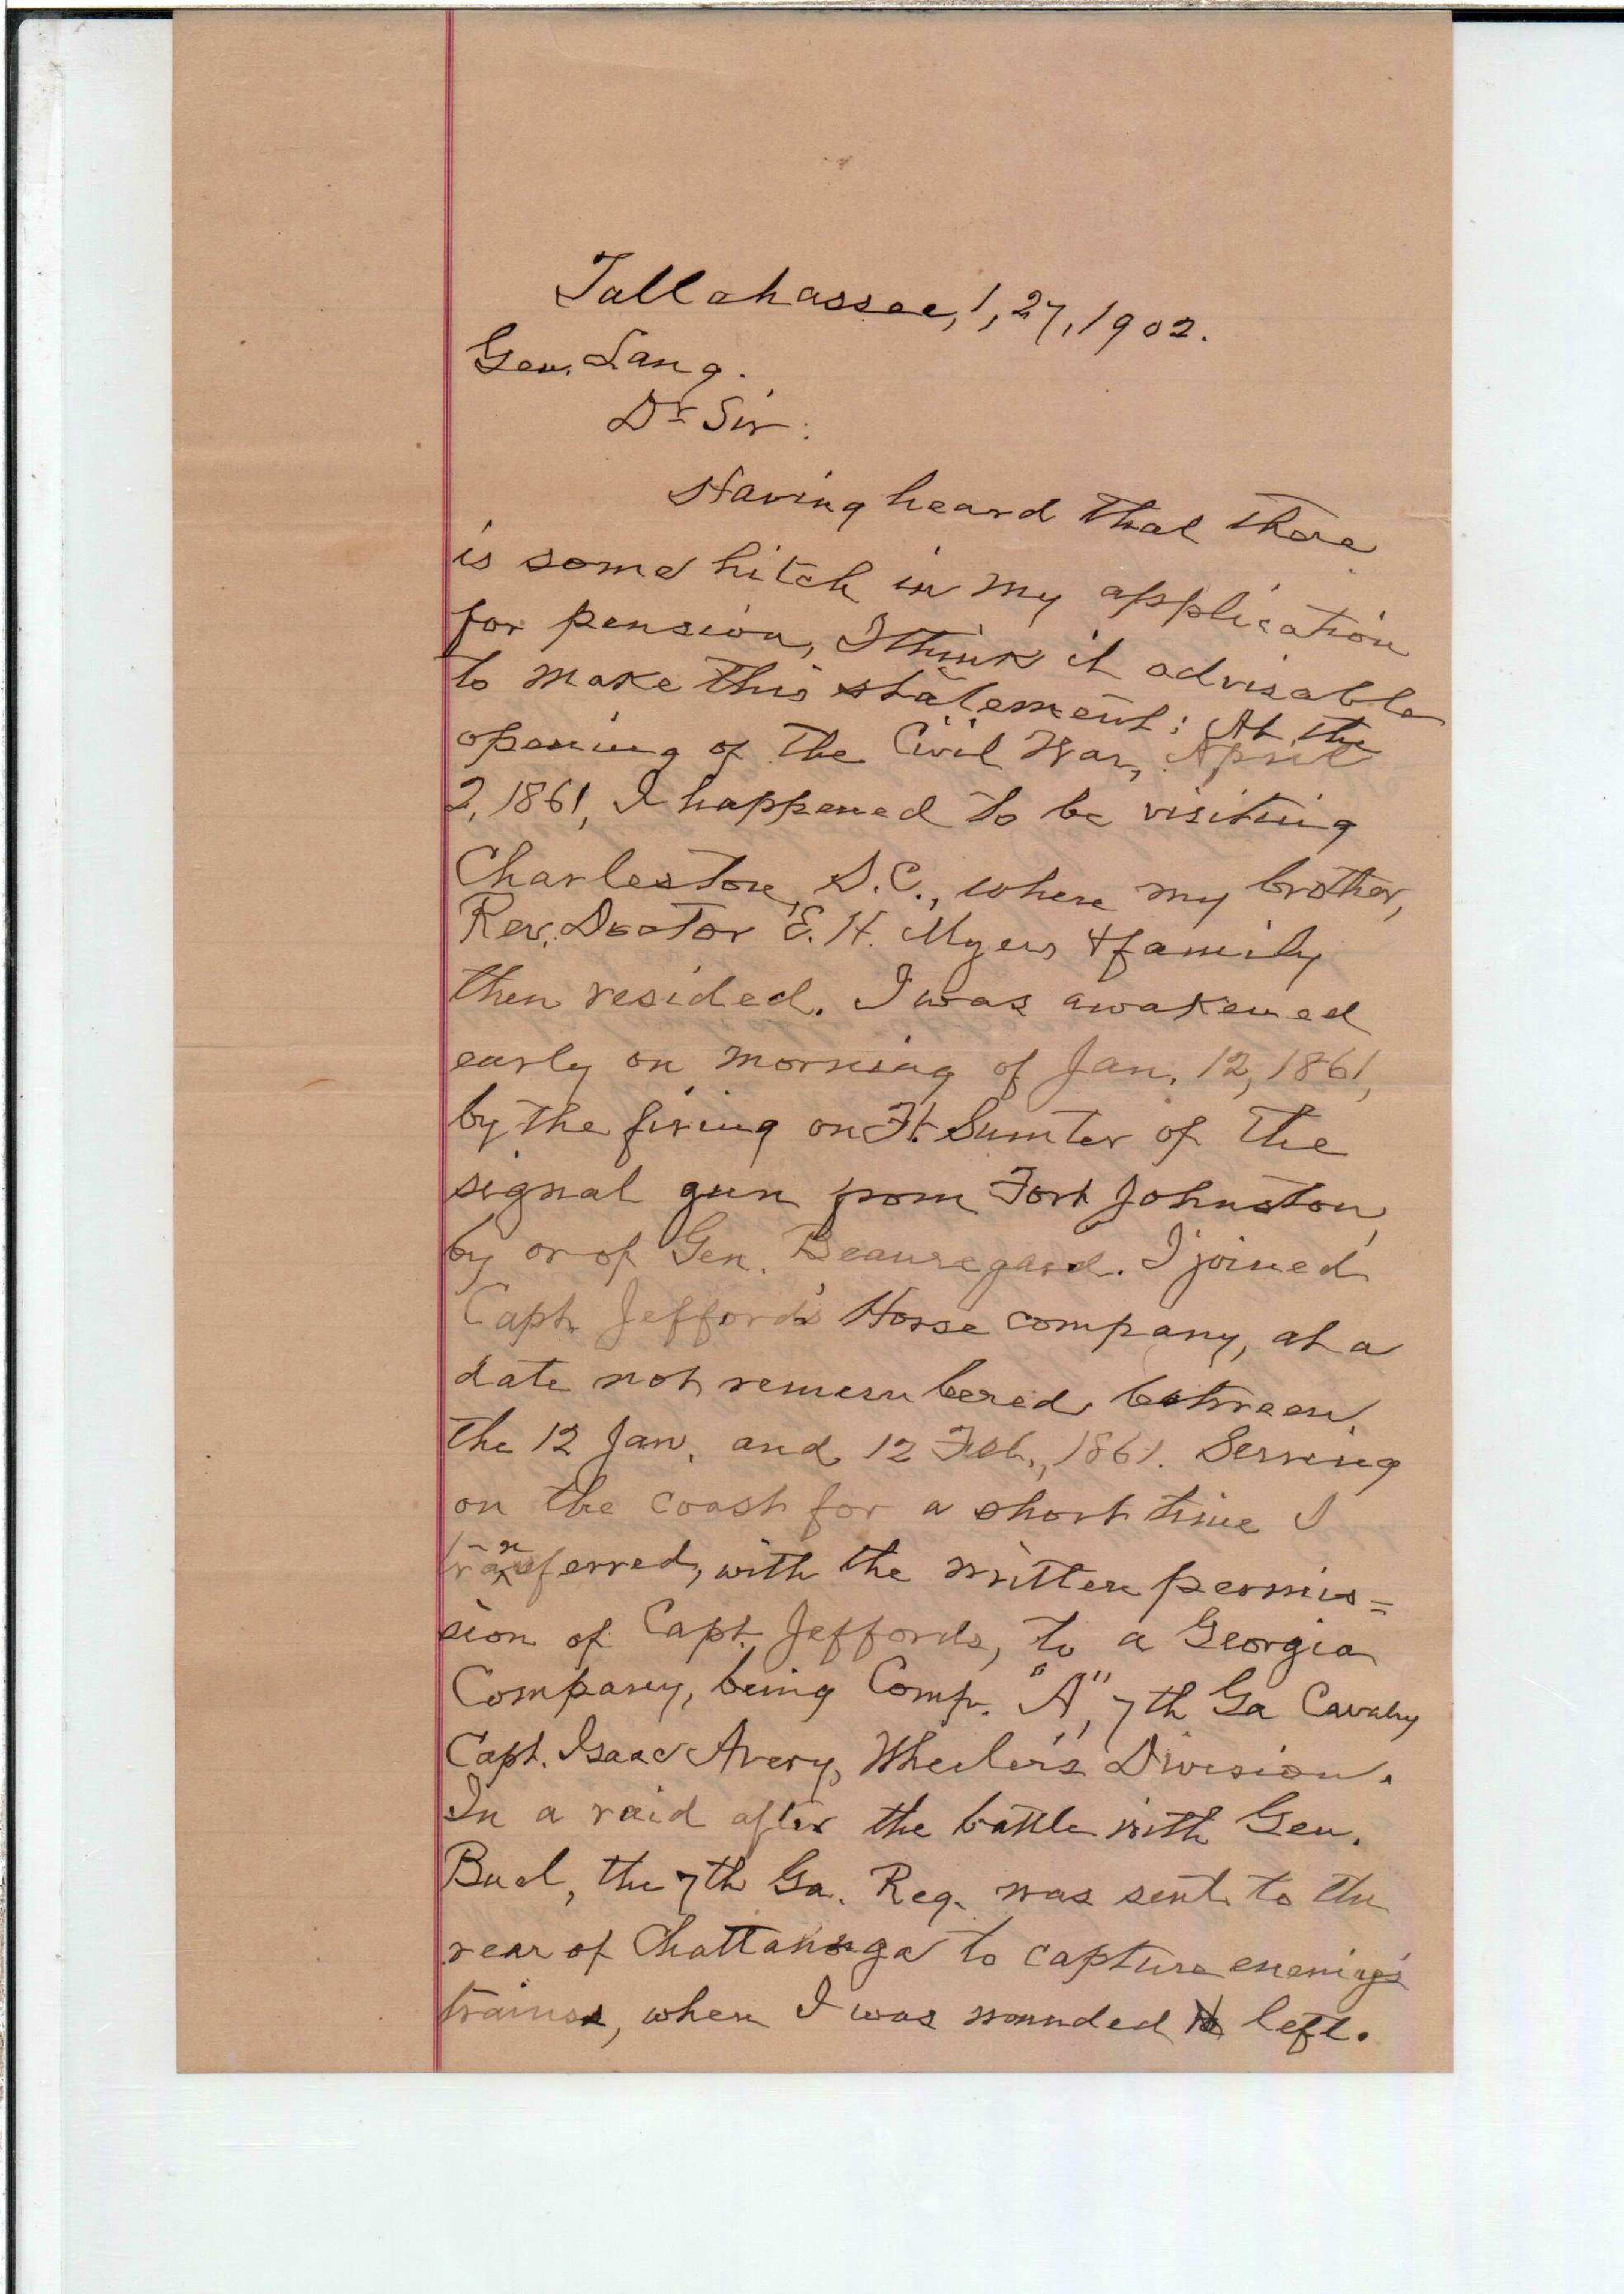 Tallahassee, 1, 27, 1902.
Gen. Lang.
Dr Sir:
Having heard that there
is some hitch in my application
for pension, I think it advisable
to make this statement: At the
opening of the Civil War, April
2, 1861, I happened to be visiting
Charleston, S.C., where my brother,
Rev. Doctor E. H. Myers & family
then resided. I was awakened
early on morning of Jan. 12, 1861,
by the firing on Ft. Sumter of the
signal gun from Fort Johnston,
by or of Gen. Beauregard. I joined
Capt. Jefford's Horse company, at a
date not remembered between
the 12 Jan. and 12 Feb., 1861. Serving
on the coast for a short time I
transferred, with the written permis=
sion of Capt. Jeffords, to a Georgia
Company, being Comp. "A", 7th Ga Cavalry
Capt. Isaac Avery, Wheeler's Division.
In a raid after the battle with Gen.
Buel, the 7th Ga. Reg. was sent to the
rear of Chattanooga to capture enemy's
trains, when I was wounded & left.